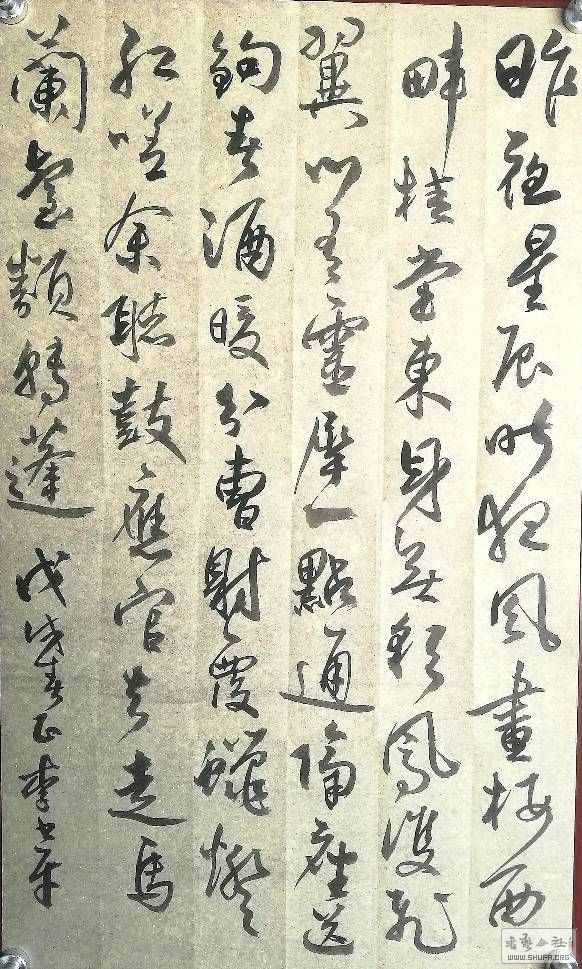 昨夜星辰昨夜風畫樓西
畔桂堂東身無彩鳳雙飛
翼心有靈犀一點通隔座送
鉤春酒暖分曹射覆蠟燈
紅嗟余聽鼓應官去走馬
蘭臺類轉蓬 戊戌春正李
书艺公社
WWW.SHUFA.ORG